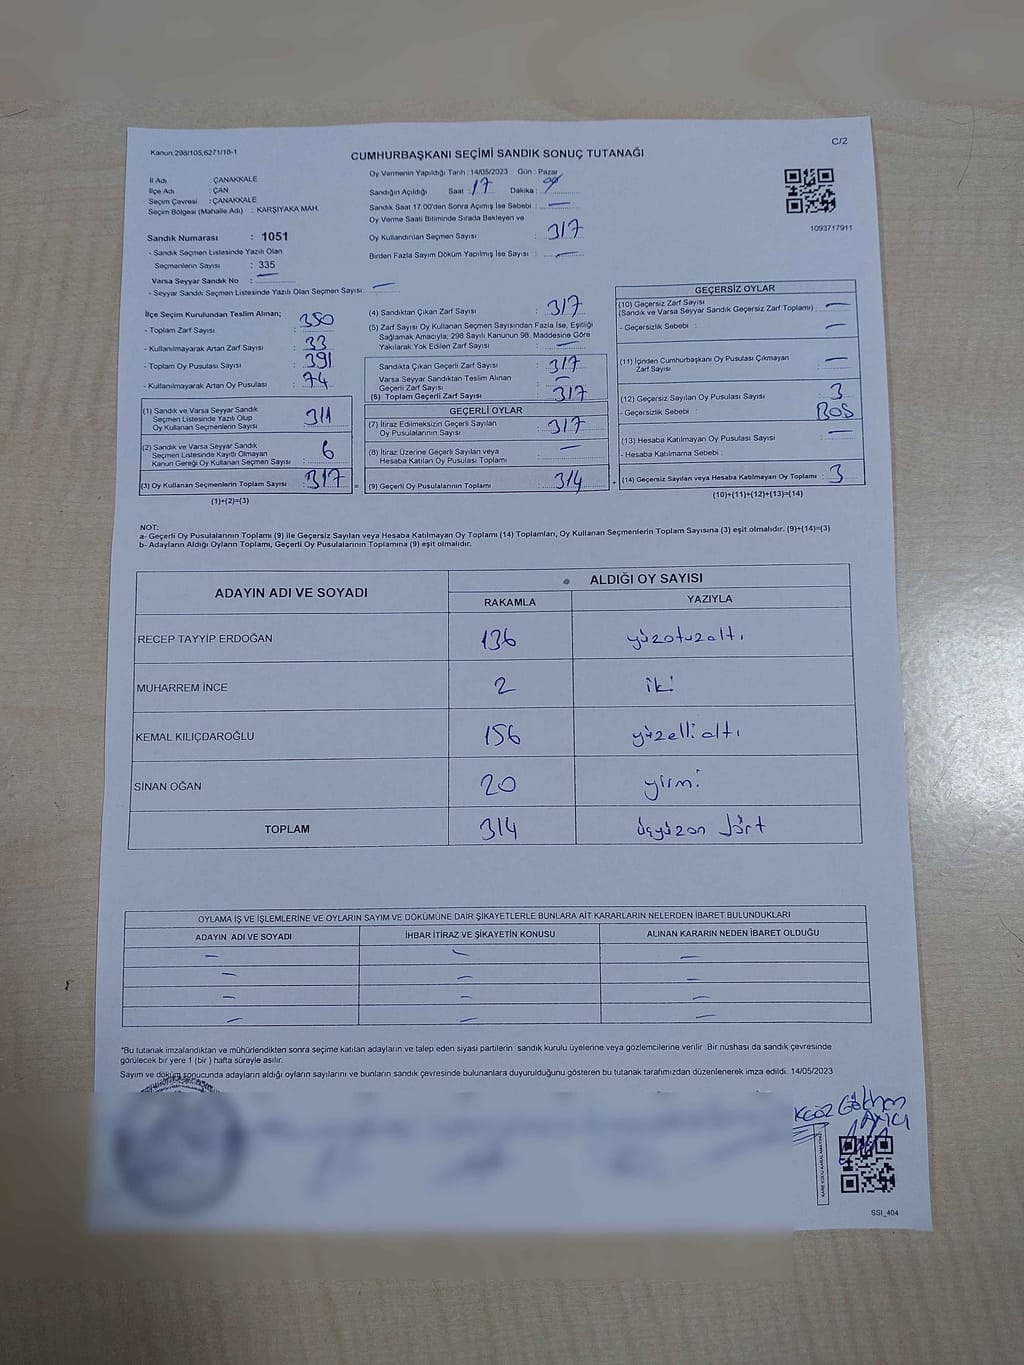 Kanun;298/105,6271/18-1
C/2
CUMHURBAŞKANI SEÇİMİ SANDIK SONUÇ TUTANAĞI
İl Adı : ÇANAKKALE
İlçe Adı : ÇAN
Seçim Çevresi : ÇANAKKALE
Seçim Bölgesi (Mahalle Adı) : KARŞIYAKA MAH.
Sandık Numarası : 1051
- Sandık Seçmen Listesinde Yazılı Olan
Seçmenlerin Sayısı : 335
Varsa Seyyar Sandık No : —
- Seyyar Sandık Seçmen Listesinde Yazılı Olan Seçmen Sayısı: —
Oy Vermenin Yapıldığı Tarih :14/05/2023 Gün : Pazar
Sandığın Açıldığı Saat : 17 Dakika :
Sandık Saat 17:00'den Sonra Açımış İse Sebebi : —
Oy Verme Saati Bitiminde Sırada Bekleyen ve
Oy Kullandırılan Seçmen Sayısı : 317
Birden Fazla Sayım Döküm Yapılmış İse Sayısı : —
1093717911
İlçe Seçim Kurulundan Teslim Alınan;
- Toplam Zarf Sayısı : 350
- Kullanılmayarak Artan Zarf Sayısı : 33
- Toplam Oy Pusulası : 391
- Kullanılmayarak Artan Oy Pusulası : 74
(1) Sandık ve Varsa Seyyar Sandık
Seçmen Listesinde Yazılı Olup
Oy Kullanan Seçmenlerin Sayısı : 311
(2) Sandık ve Varsa Seyyar Sandık
Seçmen Listesinde Kayıtlı Olmayan
Kanun Gereği Oy Kullanan Seçmen Sayısı : 6
(3) Oy Kullanan Seçmenlerin Toplam Sayısı : 317 =
(1)+(2)=(3)
(4) Sandıktan Çıkan Zarf Sayısı : 317
(5) Zarf Sayısı Oy Kullanan Seçmen Sayısından Fazla İse, Eşitliği
Sağlamak Amacıyla; 298 Sayılı Kanunun 98. Maddesine Göre
Yakılarak Yok Edilen Zarf Sayısı : —
Sandıkta Çıkan Geçerli Zarf Sayısı : 317
Varsa Seyyar Sandıktan Teslim Alınan
Geçerli Zarf Sayısı : —
(6) Toplam Geçerli Zarf Sayısı : 317
GEÇERLİ OYLAR
(7) İtiraz Edilmeksizin Geçerli Sayılan
Oy Pusulalarının Sayısı : 317
(8) İtiraz Üzerine Geçerli Sayılan veya
Hesaba Katılan Oy Pusulası Toplamı : —
(9) Geçerli Oy Pusulalarının Toplamı : 314 +
GEÇERSİZ OYLAR
(10) Geçersiz Zarf Sayısı
(Sandık ve Varsa Seyyar Sandık Geçersiz Zarf Toplamı) : —
- Geçersizlik Sebebi : —
(11) İçinden Cumhurbaşkanı Oy Pusulası Çıkmayan
Zarf Sayısı : —
(12) Geçersiz Sayılan Oy Pusulası Sayısı : 3
- Geçersizlik Sebebi : BOŞ
(13) Hesaba Katılmayan Oy Pusulası Sayısı : —
- Hesaba Katılmama Sebebi :
(14) Geçersiz Sayılan veya Hesaba Katılmayan Oy Toplamı : 3
(10)+(11)+(12)+(13)=(14)
NOT:
a- Geçerli Oy Pusulalarının Toplamı (9) ile Geçersiz Sayılan veya Hesaba Katılmayan Oy Toplamı (14) Toplamları, Oy Kullanan Seçmenlerin Toplam Sayısına (3) eşit olmalıdır. (9)+(14)=(3)
b- Adayların Aldığı Oyların Toplamı, Geçerli Oy Pusulalarının Toplamına (9) eşit olmalıdır.
ADAYIN ADI VE SOYADI
ALDIĞI OY SAYISI
RAKAMLA YAZIYLA
RECEP TAYYİP ERDOĞAN 136 yüzotuzaltı
MUHARREM İNCE 2 iki
KEMAL KILIÇDAROĞLU 156 yüzellialtı
SİNAN OĞAN 20 yirmi
TOPLAM 314 üçyüzon dört
OYLAMA İŞ VE İŞLEMLERİNE VE OYLARIN SAYIM VE DÖKÜMÜNE DAİR ŞİKAYETLERLE BUNLARA AİT KARARLARIN NELERDEN İBARET BULUNDUKLARI
ADAYIN ADI VE SOYADI İHBAR İTİRAZ VE ŞİKAYETİN KONUSU ALINAN KARARIN NEDEN İBARET OLDUĞU
— — —
— — —
— — —
— — —
*Bu tutanak imzalandıktan ve mühürlendikten sonra seçime katılan adayların ve talep eden siyasi partilerin sandık kurulu üyelerine veya gözlemcilerine verilir .Bir nüshası da sandık çevresinde
görülecek bir yere 1 (bir ) hafta süreyle asılır.
Sayım ve döküm sonucunda adayların aldığı oyların sayılarını ve bunların sandık çevresinde bulunanlara duyurulduğunu gösteren bu tutanak tarafımızdan düzenlenerek imza edildi. 14/05/2023
Gökhan
KARE KODU KARALAMAYINIZ
SSI_404